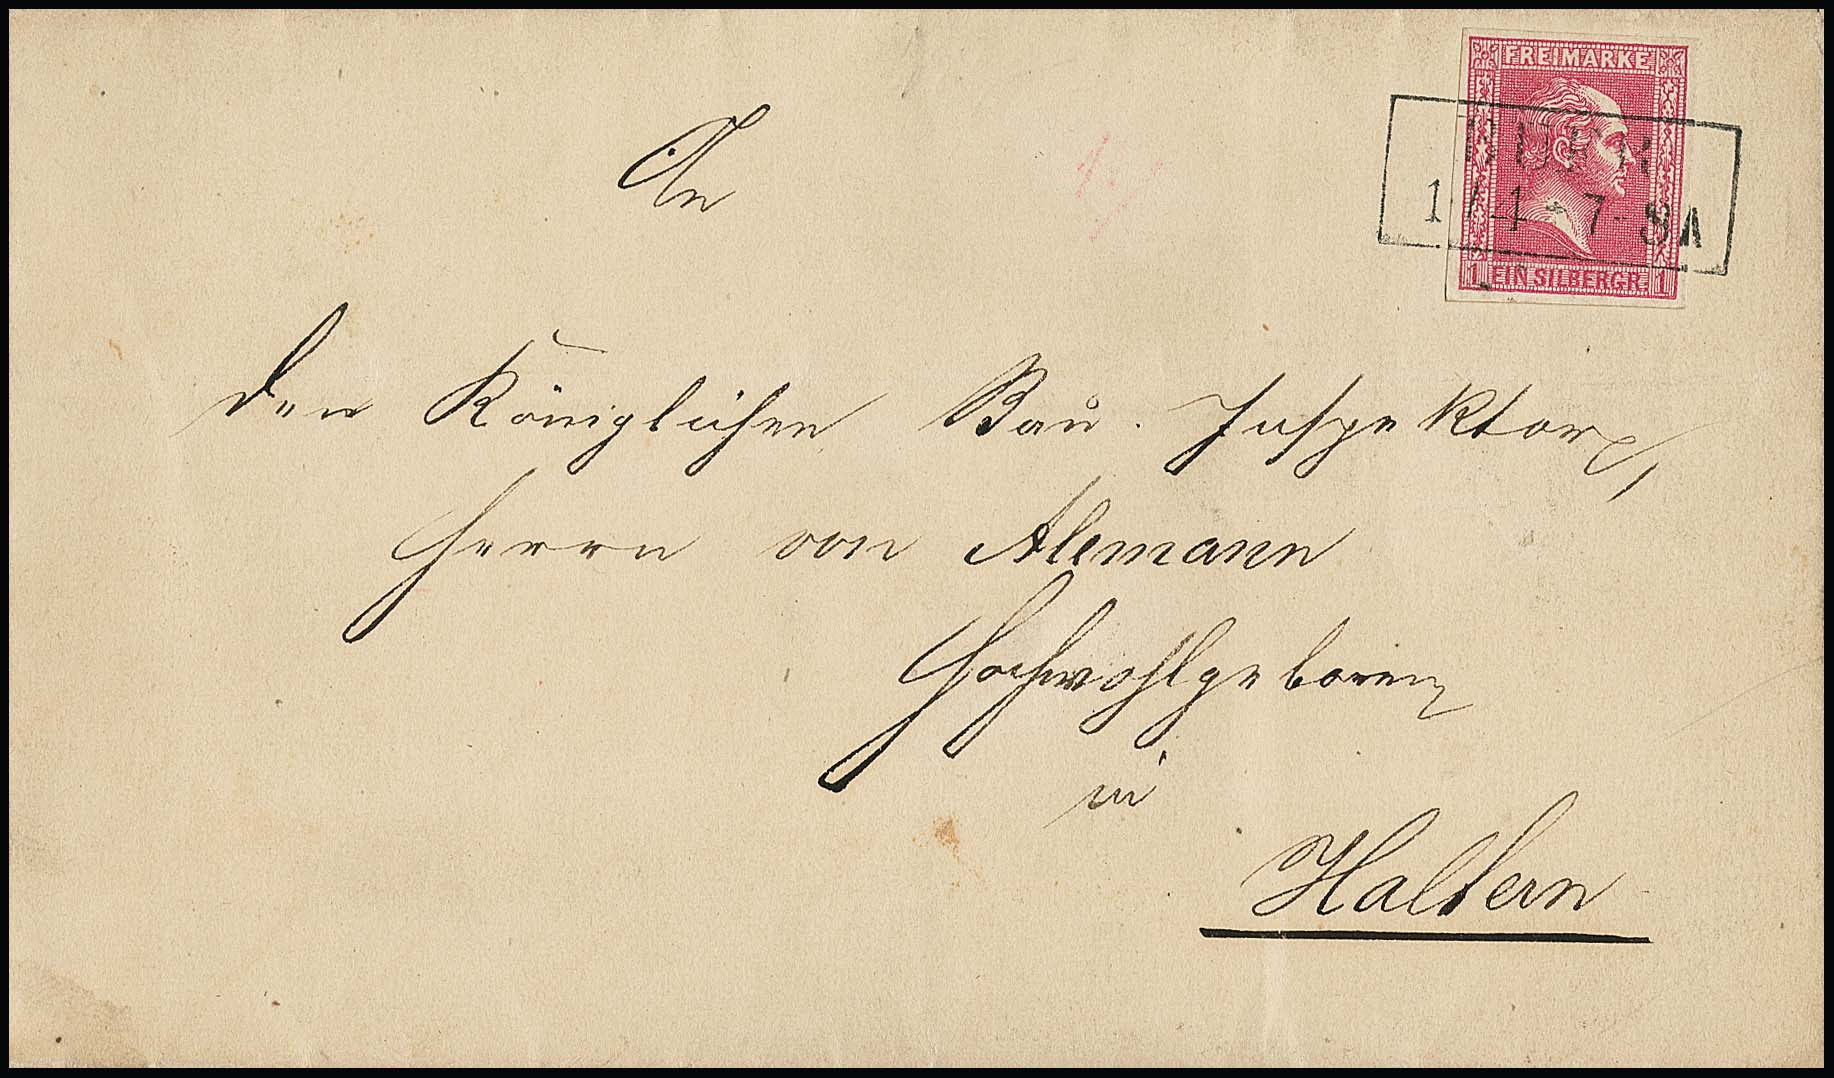 FREIMARKE
BUER
1/4 - 7-8A
1 EIN SILBERGR. 1
An
den Königlichen Bau. Inspektor,
Herrn von Alemann
Hochwohlgeboren
in
Haltern